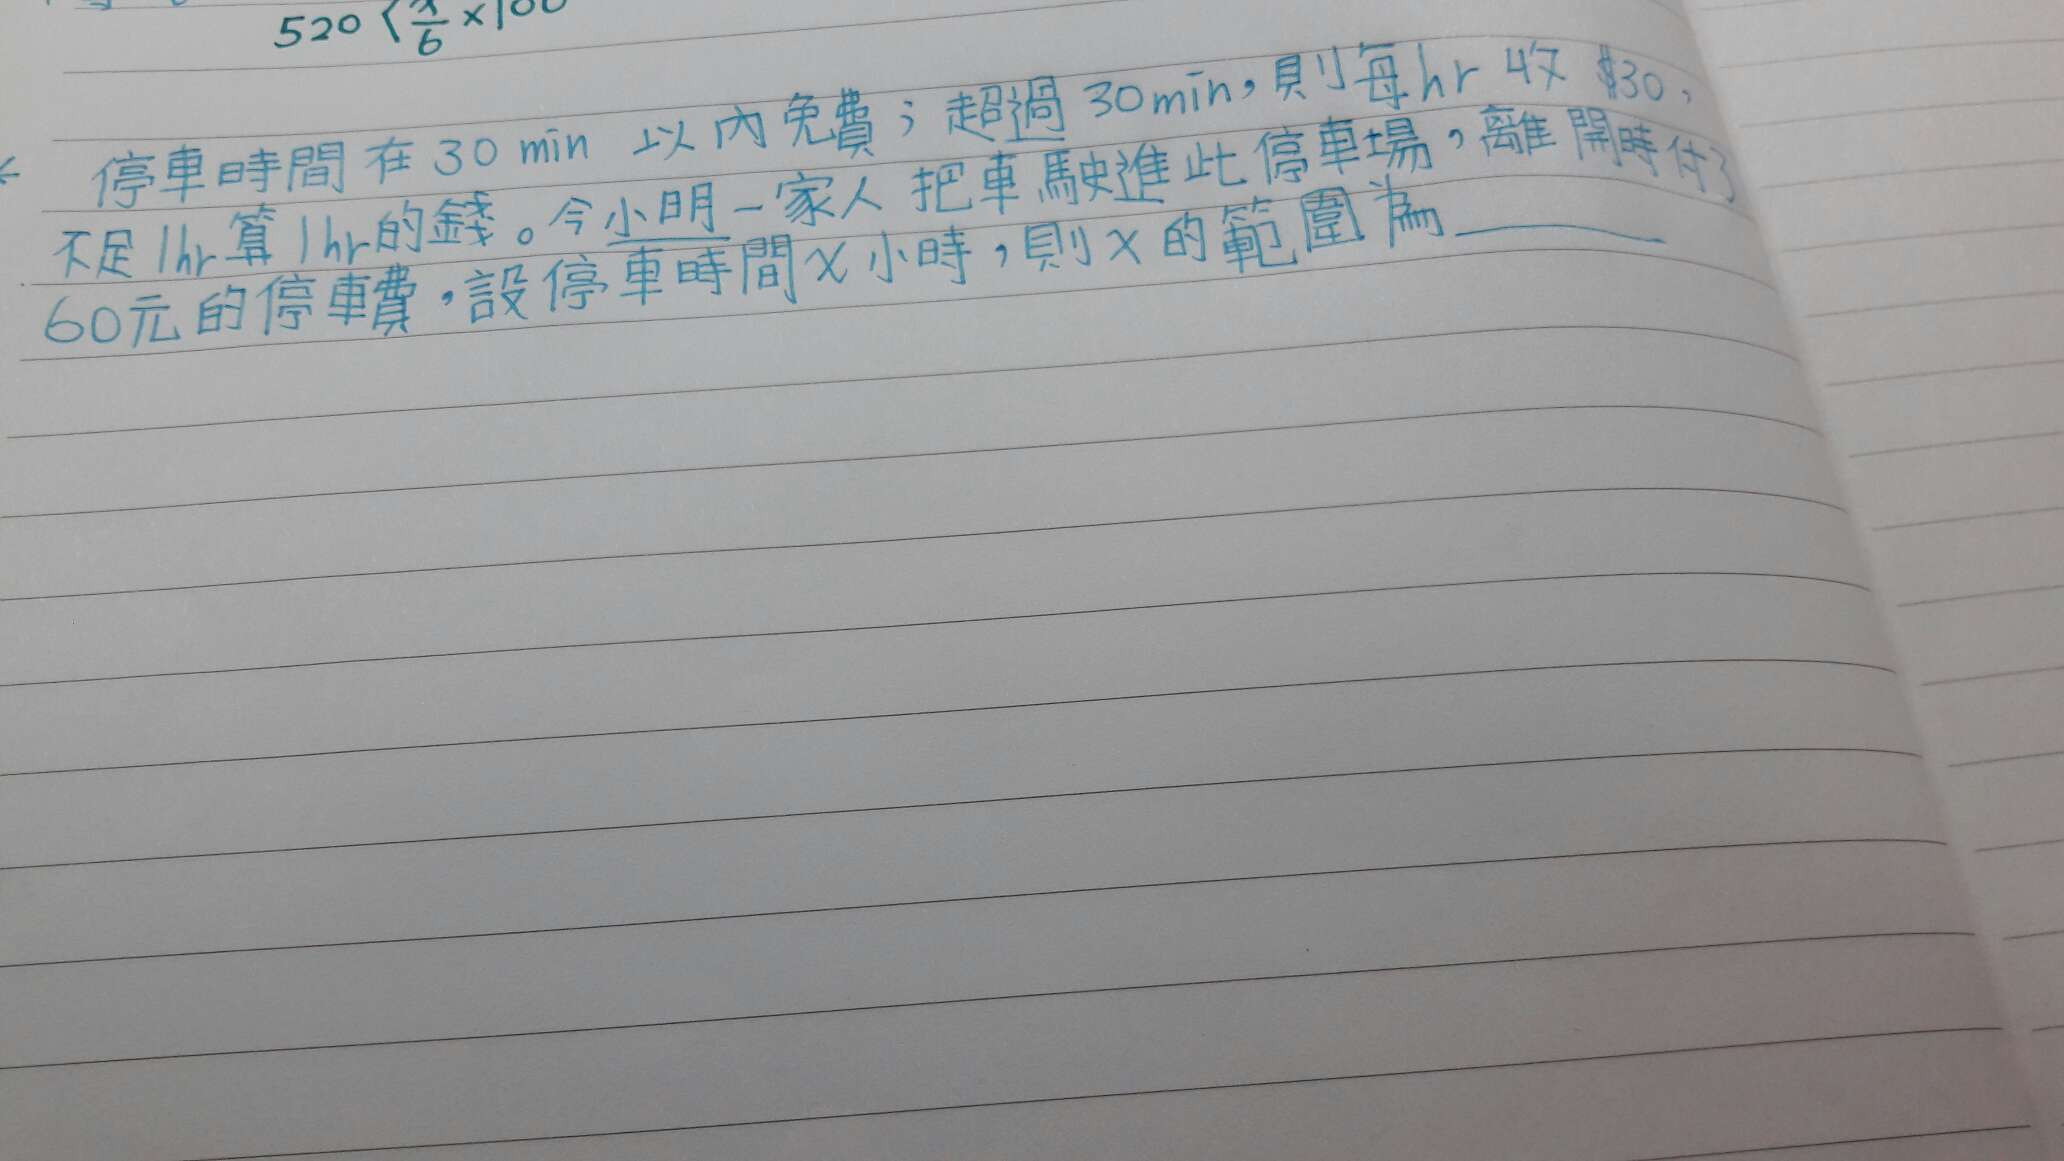 520 < x/6 ×100
停車時間在30 min 以內免費；超過30min，則每hr 收 $30，
不足1hr算1hr的錢。今小明一家人把車駛進此停車場，離開時付了
60元的停車費，設停車時間x小時，則x的範圍為______